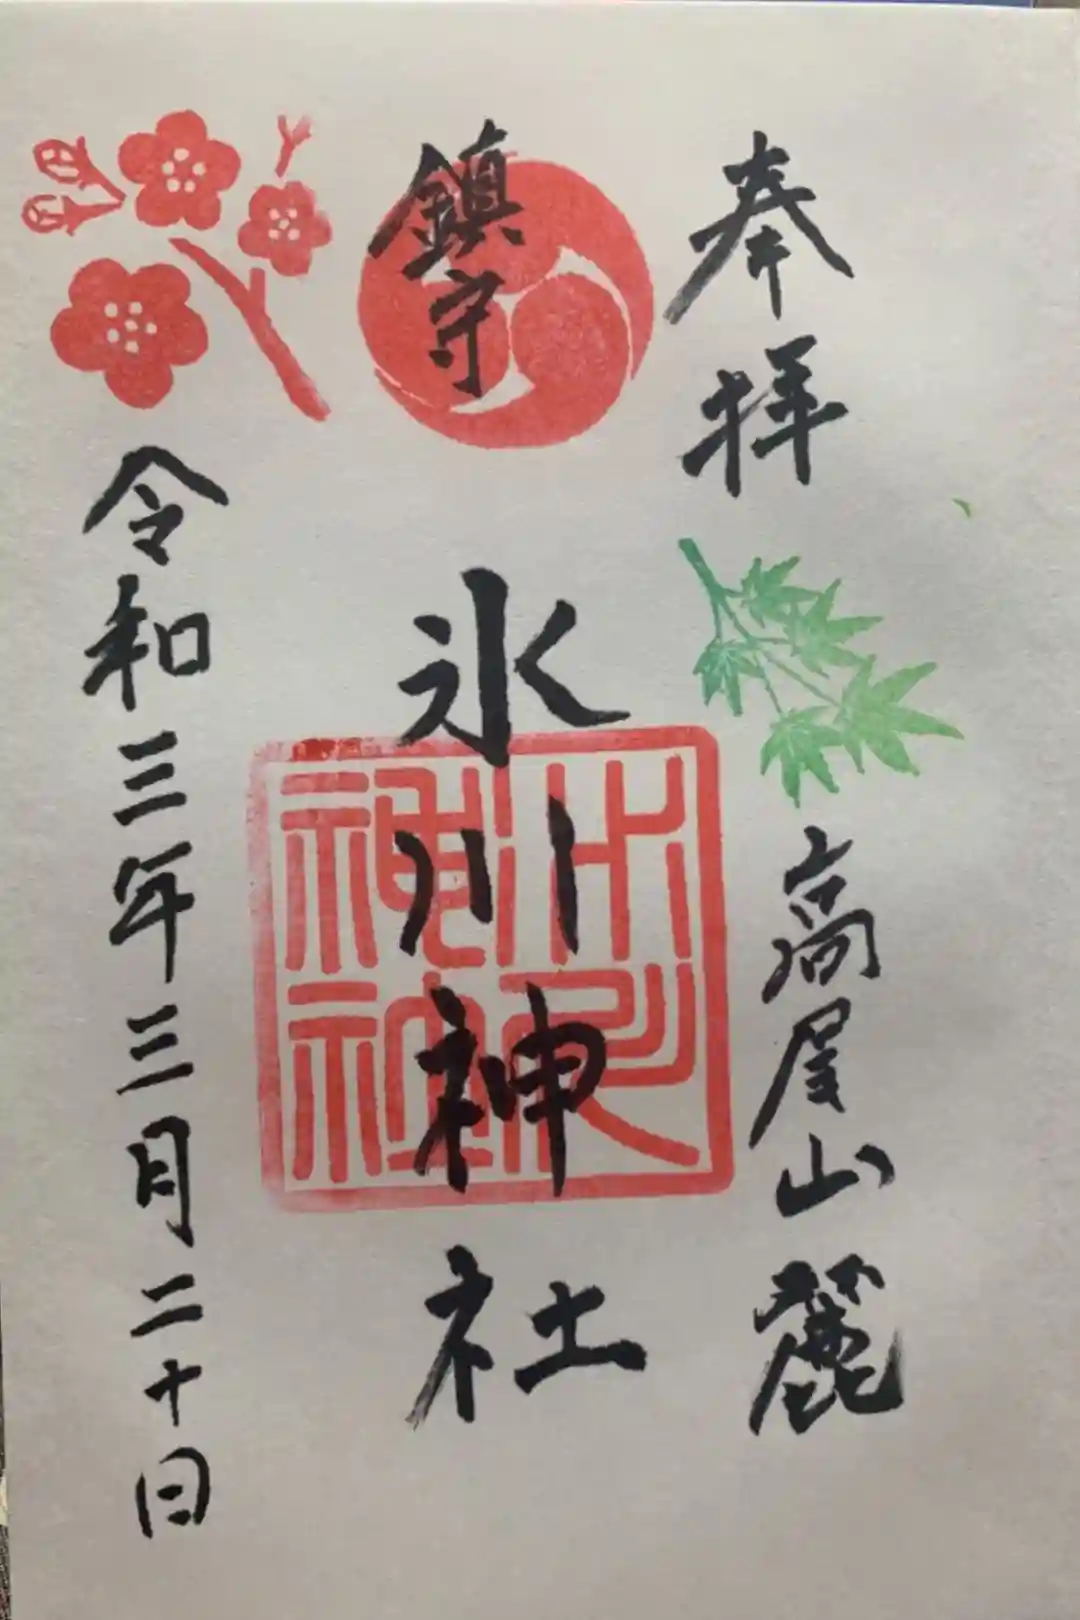 奉拝
高尾山麗
鎮守
氷川神社
氷川神社
令和三年三月二十日